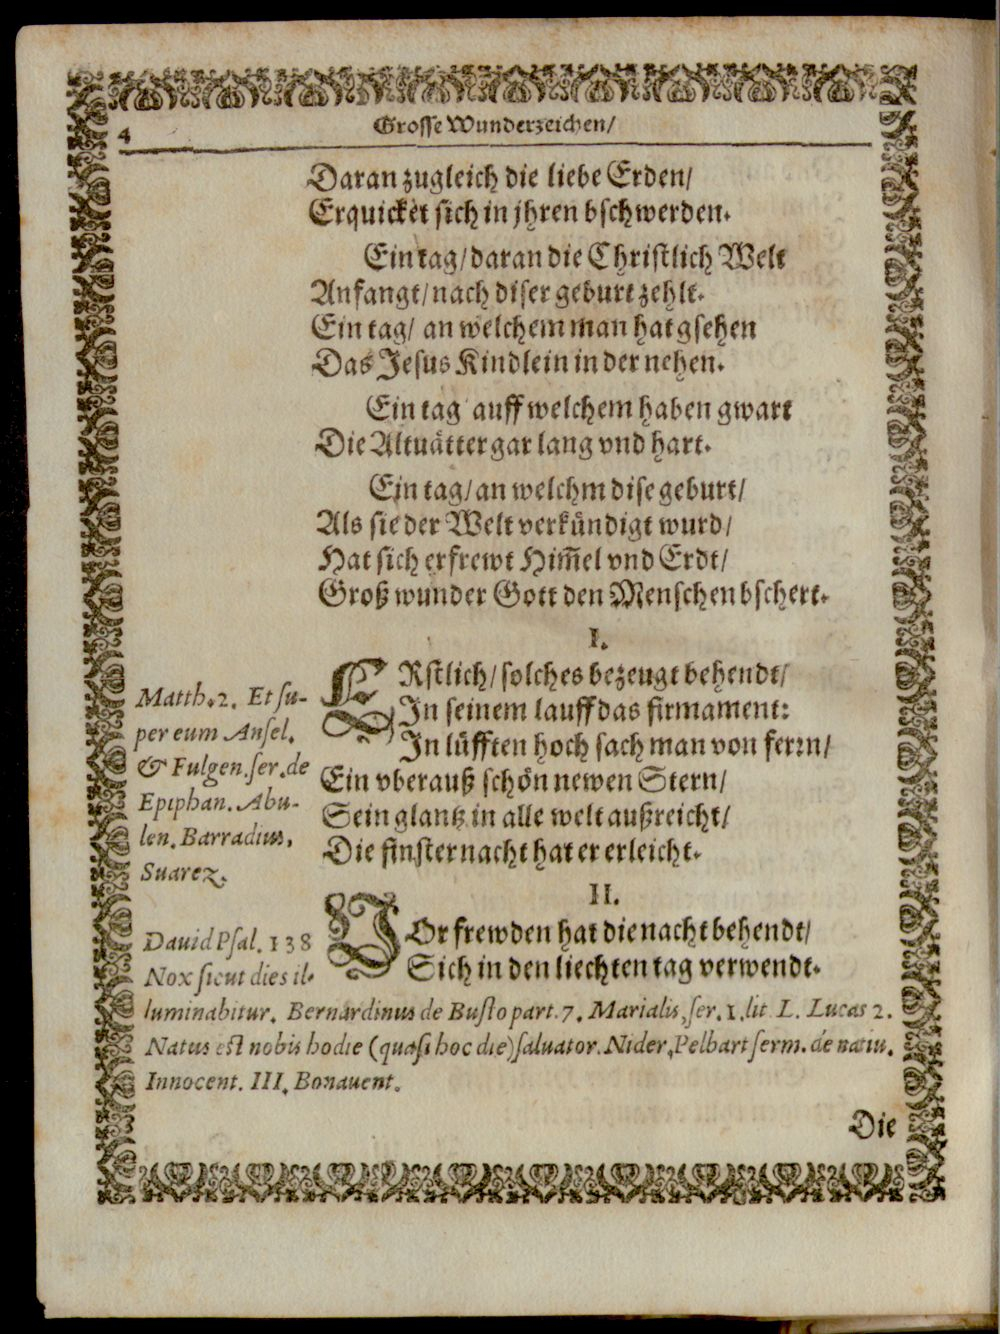 4
Grosse Wunderzeichen/
Daran zugleich die liebe Erden/
Erquicket sich in jhren bschwerden.
Ein tag/ daran die Christlich Welt
Anfangt/ nach diser geburt zehlt.
Ein tag/ an welchem man hat gsehen
Das Jesus Kindlein in der nehen.
Ein tag auff welchem haben gwart
Die Altuätter gar lang vnd hart.
Ein tag/ an welchm dise geburt/
Als sie der Welt verkündigt wurd/
Hat sich erfrewt Him̃el vnd Erdt/
Groß wunder Gott den Menschen bschert.
I.
ERstlich/ solches bezeugt behendt/
In seinem lauff das firmament:
In lüfften hoch sach man von ferrn/
Ein vberauß schön newen Stern/
Sein glantz in alle welt außreicht/
Die finster nacht hat er erleicht.
Matth. 2. Et su-
per eum Ansel.
& Fulgen. ser. de
Epiphan. Abu-
len. Barradius,
Suarez.
II.
VOr frewden hat die nacht behendt/
Sich in den liechten tag verwendt.
Dauid Psal. 138
Nox sicut dies il-
luminabitur. Bernardinus de Busto part. 7. Marialis, ser. 1. lit L. Lucas 2.
Natus est nobis hodie (quasi hoc die) saluator. Nider, Pelbart serm. de natiu.
Innocent. III. Bonauent.
Die